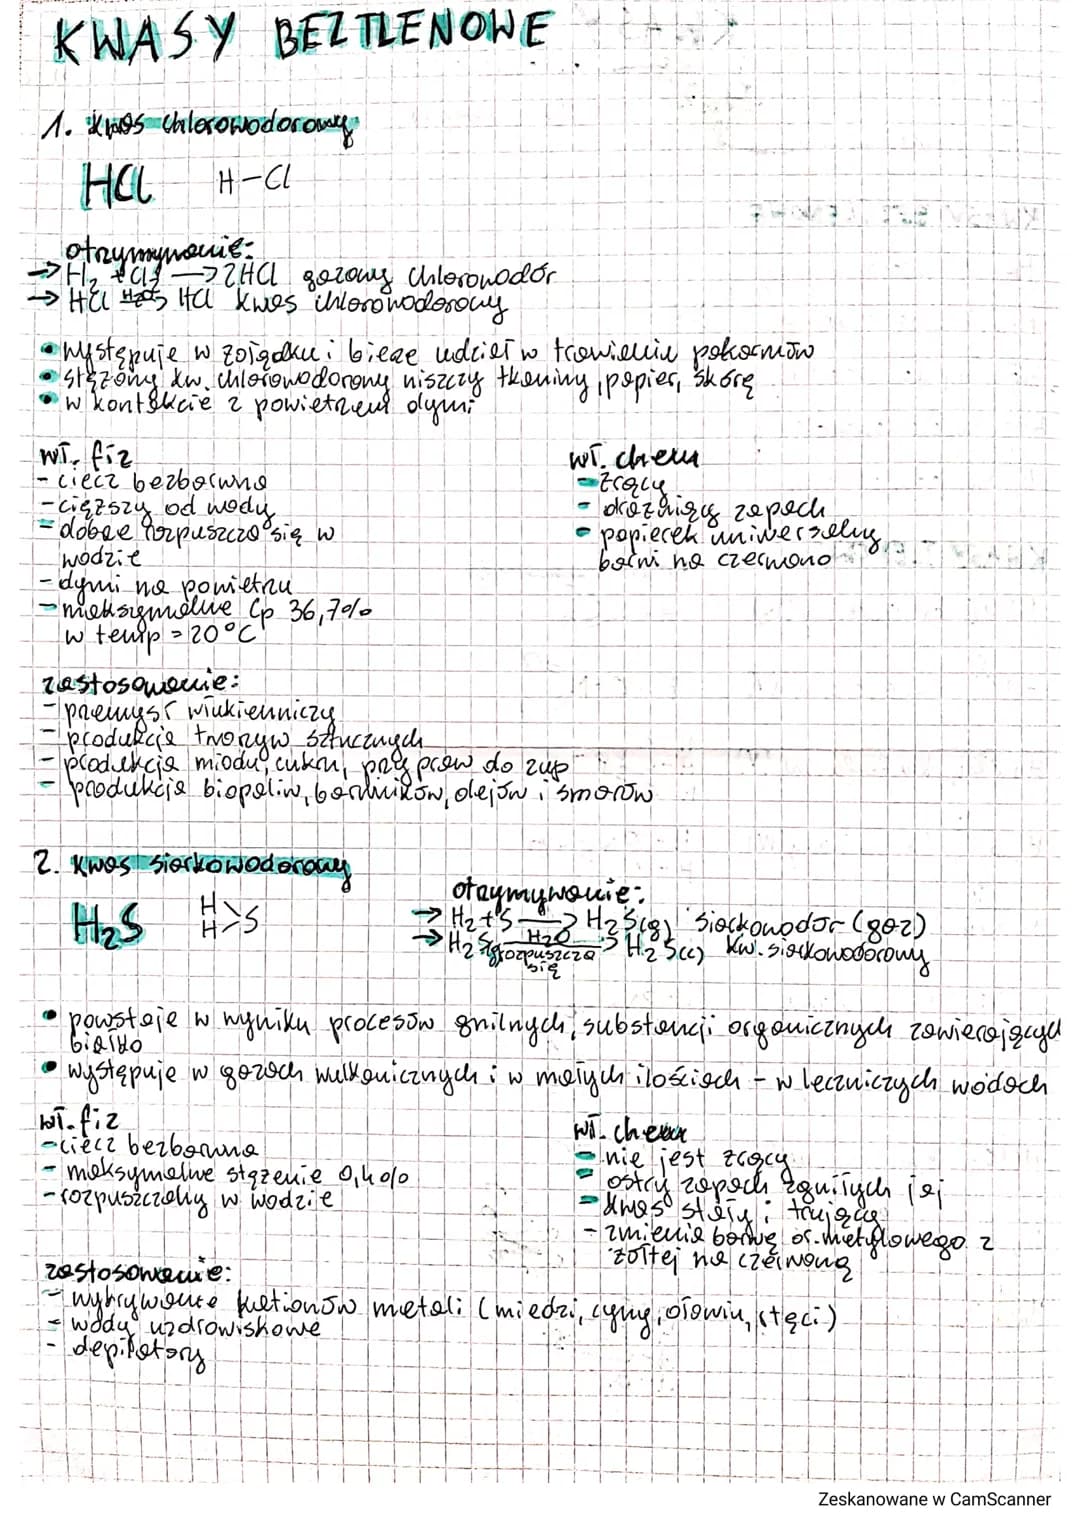 KWASY BEZTLENOWE
1. Kwas chlorowodorowy
HCl H-Cl
otrzymywanie:
→ H₂ + Cl₂ → 2HCl gazowy chlorowodór
→ HCl H₂O→ HCl kwas chlorowodorowy
• występuje w żołądku i bieze udział w trawieniu pokarmów
• stężony kw. chlorowodorowy niszczy tkaniny, papier, skórę
• w kontakcie z powietrzem dymi
wł. fiz
- ciecz bezbarwna
- cięższy od wody
- dobrze rozpuszcza się w
wodzie
- dymi na powietrzu
- maksymalne Cp 36,7%
w temp = 20°C
wł. chem
- żrący
- drażniący zapach
- papierek uniwersalny
barwi na czerwono
zastosowanie:
- przemysł włukienniczy
- produkcja tworzyw sztucznych
- produkcja miodu, cukru, przypraw do zup
- produkcja biopaliw, barwników, olejów i smarów
2. Kwas siarkowodorowy
H₂S H
H>S
otrzymywanie:
→ H₂ + S → H₂S(g) siarkowodór (gaz)
→ H₂S(g) H₂O rozpuszcza się → H₂S(c) kw. siarkowodorowy
• powstaje w wyniku procesów gnilnych, substancji organicznych zawierających
białko
• występuje w gazach wulkanicznych i w małych ilościach - w leczniczych wodach
wł. fiz
- ciecz bezbarwna
- maksymalne stężenie 0,4%
- rozpuszczalny w wodzie
wł. chem
- nie jest żrący
- ostry zapach zgniłych jaj
- kwas słaby i trujący
- zmienia barwę or. metylowego z
żółtej na czerwoną
zastosowanie:
- wykrywanie kationów metali (miedzi, cyny, ołowiu, rtęci)
- wody uzdrowiskowe
- depilatory
Zeskanowane w CamScanner